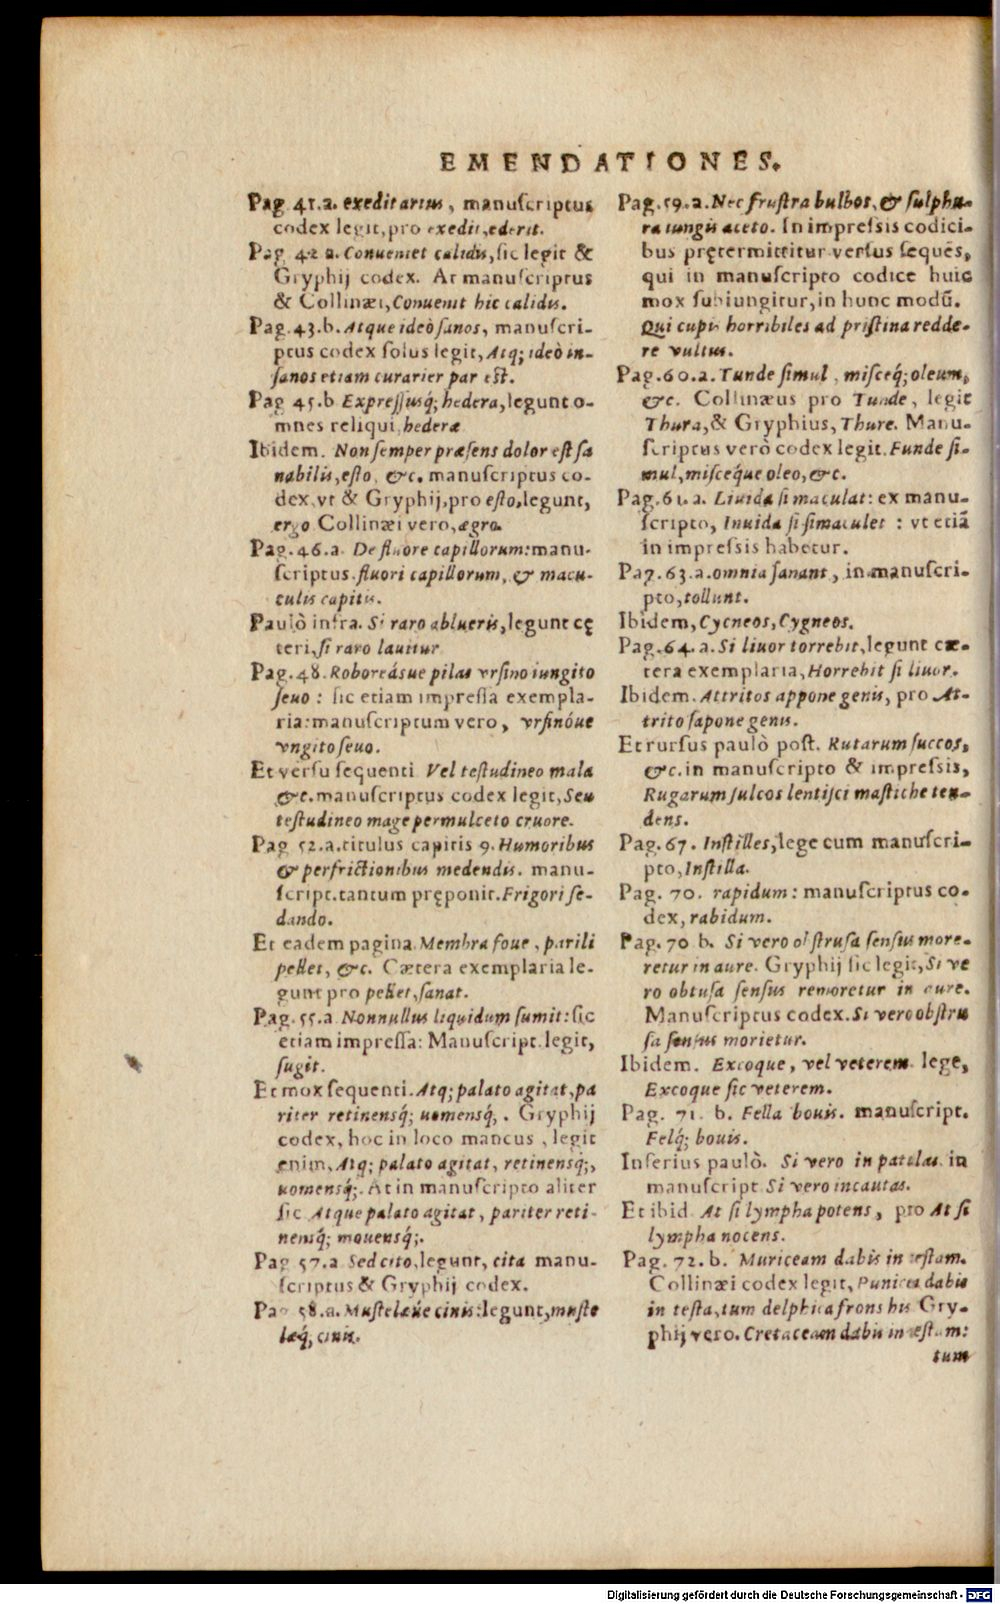 EMENDATIONES.
Pag. 41.a. exedit artus, manuscriptus
codex legit, pro exedit, ederit.
Pag. 42 a. Conueniet calidis, sic legit &
Gryphij codex. At manuscriptus
& Collinæi, Conuenit hic calidis.
Pag. 43.b. Atque ideò sanos, manuscri-
ptus codex solus legit, Atq; ideò in-
sanos etiam curarier par est.
Pag 45.b Expressusq́; hedera, legunt o-
mnes reliqui hederæ
Ibidem. Non semper præsens dolor est sa
nabilis, esto, &c. manuscriptus co-
dex, vt & Gryphij, pro esto, legunt,
ergo Collinæi vero, ægro.
Pag. 46.a. De fluore capillorum: manu-
scriptus. fluori capillorum, & macu-
culis capitis.
Paulò infra. Si raro ablueris, legunt cę
teri, si raro lauitur
Pag. 48. Roboreásue pilas vrsino iungito
seuo: sic etiam impressa exempla-
ria: manuscriptum vero, vrsinóue
vngito seuo.
Et versu sequenti Vel testudineo mala
&c. manuscriptus codex legit, Seu
testudineo mage permulceto cruore.
Pag 52.a. titulus capitis 9. Humoribus
& perfrictionibus medendis. manu-
script. tantum pręponit. Frigori se-
dando.
Et eadem pagina. Membra foue, parili
pellet, &c. Cætera exemplaria le-
gunt pro pellet, sanat.
Pag. 55.a Nonnullus liquidum sumit: sic
etiam impressa: Manuscript. legit,
sugit.
Et mox sequenti. Atq; palato agitat, pa
riter retinensq́; uomensq́,. Gryphij
codex, hoc in loco mancus, legit
enim, Atq; palato agitat, retinensq́;,
uomensq́;. At in manuscripto aliter
sic Atque palato agitat, pariter reti-
nensq́; mouensq́;.
Pag 57.a Sed cito, legunt, cita manu-
scriptus & Gryphij codex.
Pag 58.a. Mustelæue cinis: legunt, muste
læq́, cinis.
Pag. 59.a. Nec frustra bulbos, & sulphu-
ra iungis aceto. In impressis codici-
bus prętermittitur versus sequēs,
qui in manuscripto codice huic
mox subiungitur, in hunc modū.
Qui cupis horribiles ad pristina redde-
re vultus.
Pag. 60.a. Tunde simul, misceq́; oleum,
&c. Collinæus pro Tunde, legit
Thura, & Gryphius, Thure. Manu-
scriptus verò codex legit. Funde si-
mul, misceq́ue oleo, &c.
Pag. 61.a. Liuida si maculat: ex manu-
scripto, Inuida si simaculet : vt etiā
in impressis habetur.
Pag. 63.a. omnia sanant, in manuscri-
pto, tollunt.
Ibidem, Cycneos, Cygneos.
Pag. 64.a. Si liuor torrebit, legunt cæ-
tera exemplaria, Horrebit si liuor.
Ibidem. Attritos appone genis, pro At-
trito sapone genis.
Et rursus paulò post. Rutarum succos,
&c. in manuscripto & impressis,
Rugarum sulcos lentisci mastiche ten-
dens.
Pag. 67. Instilles, lege cum manuscri-
pto, Instilla.
Pag. 70. rapidum: manuscriptus co-
dex, rabidum.
Pag. 70 b. Si vero obstrusa sensus more-
retur in aure. Gryphij sic legit, Si ve
ro obtusa sensus remoretur in aure.
Manuscriptus codex. Si vero obstru
sa sensus morietur.
Ibidem. Excoque, vel veterem lege,
Excoque sic veterem.
Pag. 71. b. Fella bouis. manuscript.
Felq́; bouis.
Inferius paulò. Si vero in patulas in
manuscript Si vero incautas.
Et ibid At si lympha potens, pro At si
lympha nocens.
Pag. 72. b. Muriceam dabis in testam.
Collinæi codex legit, Punicea dabis
in testa, tum delphica frons his Gry-
phij vero. Cretaceam dabis in testam:
tum
Digitalisierung gefördert durch die Deutsche Forschungsgemeinschaft - DFG